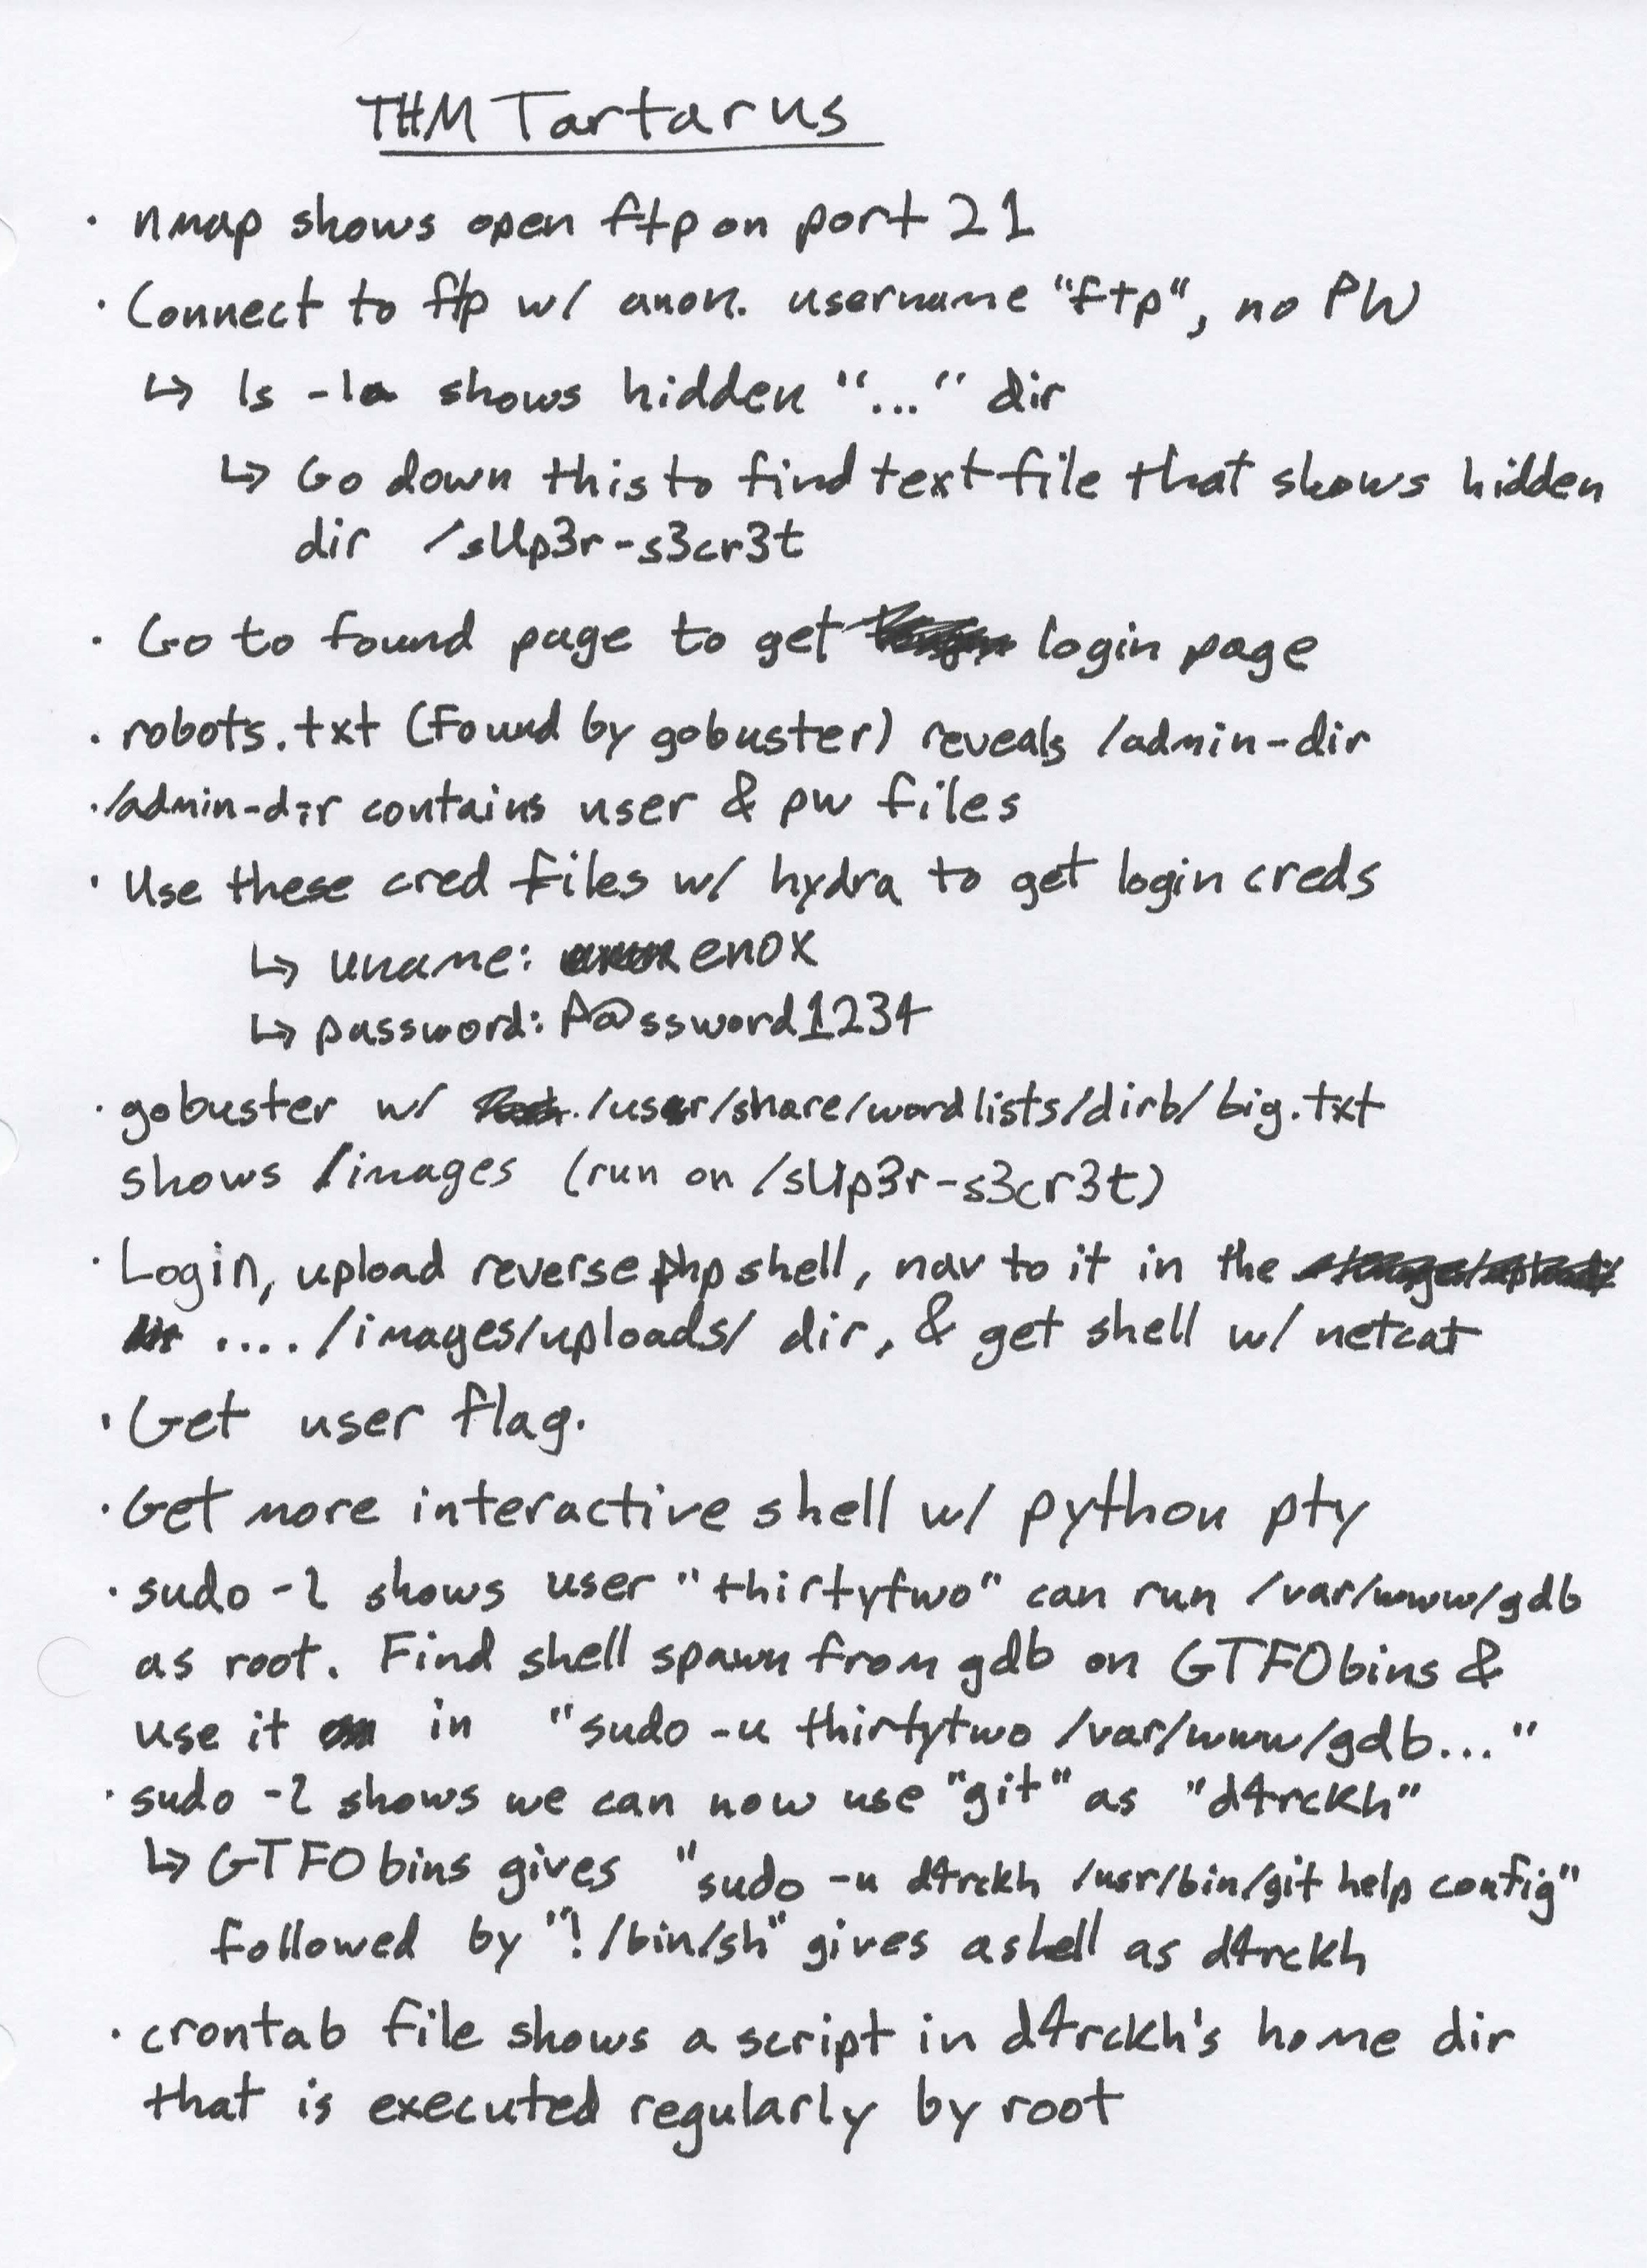 THM Tartarus
· nmap shows open ftp on port 21
· Connect to ftp w/ anon. username "ftp", no PW
↳ ls -la shows hidden "..." dir
↳ Go down this to find text file that shows hidden
dir /sUp3r-s3cr3t
· Go to found page to get login page
· robots.txt (Found by gobuster) reveals /admin-dir
· /admin-dir contains user & pw files
· Use these cred files w/ hydra to get login creds
↳ uname: enox
↳ password: P@ssword1234
· gobuster w/ /user/share/wordlists/dirb/big.txt
shows /images (run on /sUp3r-s3cr3t)
· Login, upload reverse php shell, nav to it in the
..../images/uploads/ dir, & get shell w/ netcat
· Get user flag.
· Get more interactive shell w/ python pty
· sudo -l shows user "thirtytwo" can run /var/www/gdb
as root. Find shell spawn from gdb on GTFObins &
use it in "sudo -u thirtytwo /var/www/gdb..."
· sudo -l shows we can now use "git" as "d4rckh"
↳ GTFObins gives "sudo -u d4rckh /usr/bin/git help config"
followed by "!/bin/sh" gives a shell as d4rckh
· crontab file shows a script in d4rckh's home dir
that is executed regularly by root